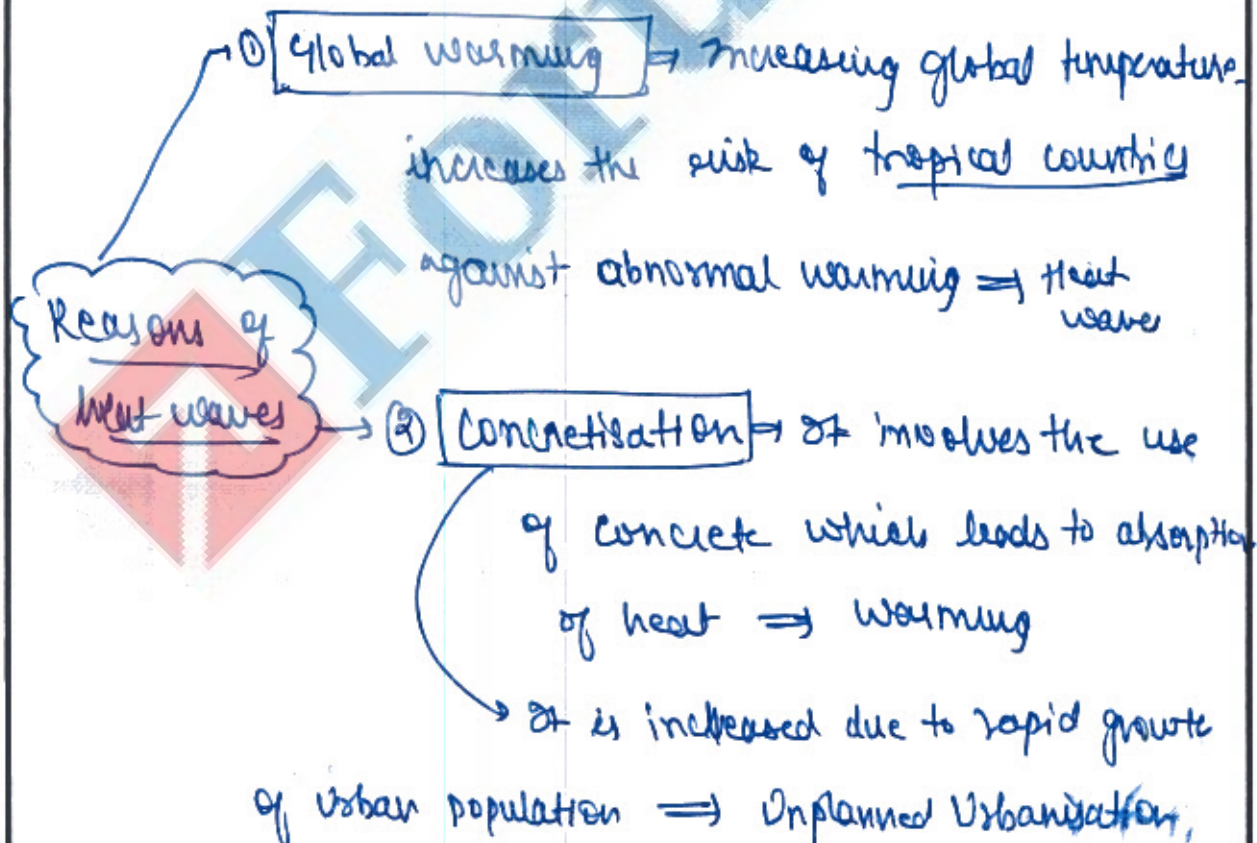 ① Global warming ⇒ Increasing global temperature
increases the risk of tropical countries
against abnormal warming ⇒ Heat
waves
Reasons of
heat waves
② Concretisation ⇒ It involves the use
of concrete which leads to absorption
of heat ⇒ warming
It is increased due to rapid growth
of urban population ⇒ Unplanned Urbanisation,